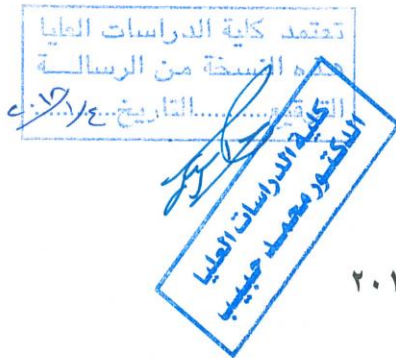 تعتمد كلية الدراسات العليا
هذه النسخة من الرسالــة
التوقيع.........التاريخ
كلية الدراسات العليا
الدكتور محمد حبيب